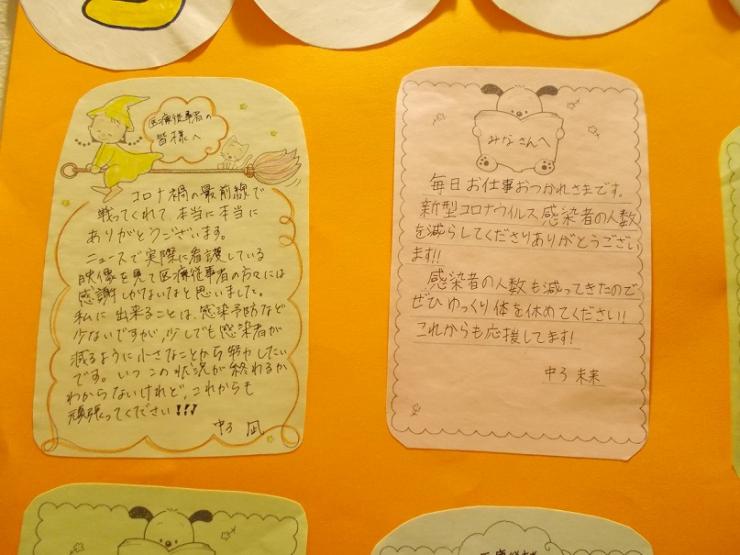 医療従事者の
皆様へ
コロナ禍の最前線で
戦ってくれて本当に本当に
ありがとうございます。
ニュースで実際に看護している
映像を見て医療従事者の方々には
感謝しかないなと思いました。
私に出来ることは、感染予防など
少ないですが、少しでも感染者が
減るように小さなことから努力したい
です。いつこの状況が終わるか
わからないけれど、これからも
頑張ってください!!!
中3 凪
みなさんへ
毎日お仕事おつかれさまです。
新型コロナウイルス感染者の人数
を減らしてくださりありがとうござい
ます!!
感染者の人数も減ってきたので
ぜひゆっくり体を休めてください!
これからも応援してます!
中3 未来